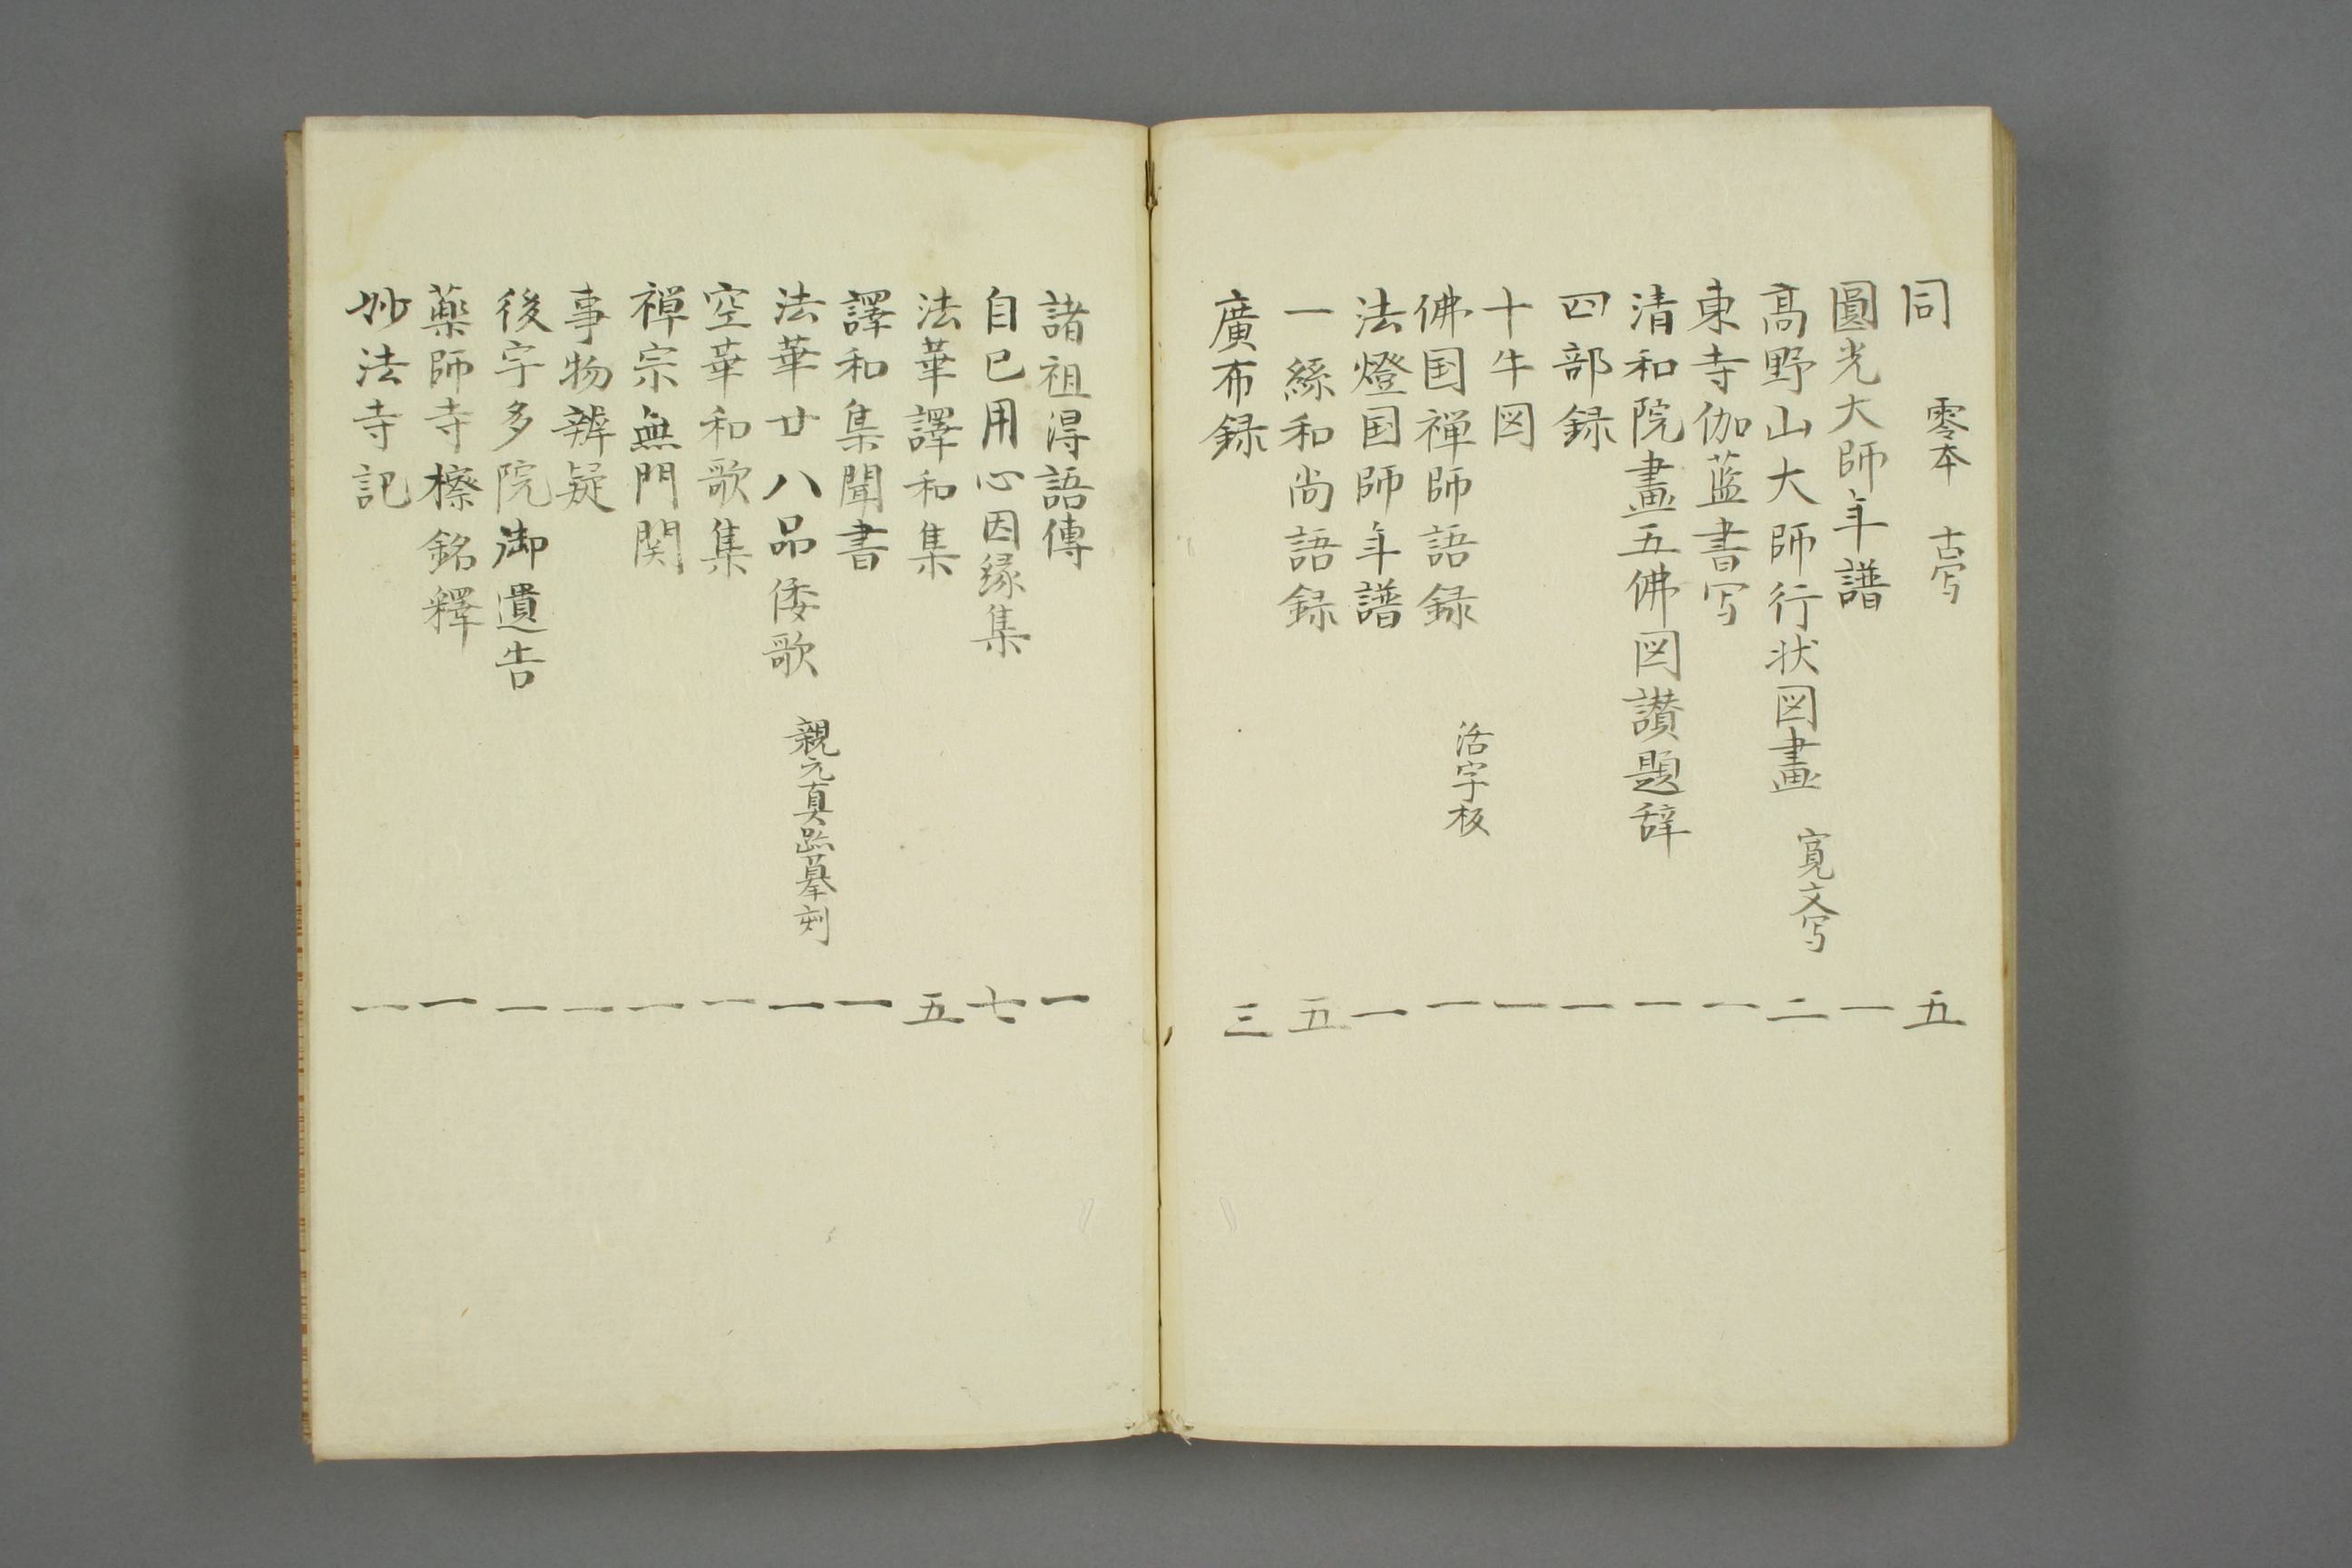 同 零本 古写 五
圓光大師年譜 一
高野山大師行状図畫 寛文写 二
東寺伽藍書写 一
清和院畫五佛図讃題辞 一
四部録 一
十牛図 一
佛国禅師語録 活字板 一
法燈国師年譜 一
一絲和尚語録 五
廣布録 三
諸祖得語傳 一
自己用心因縁集 七
法華譯和集 五
譯和集聞書 一
法華廿八品倭歌 親元真跡摹刻 一
空華和歌集 一
禅宗無門関 一
事物辨疑 一
後宇多院御遺告 一
薬師寺檫銘釋 一
妙法寺記 一